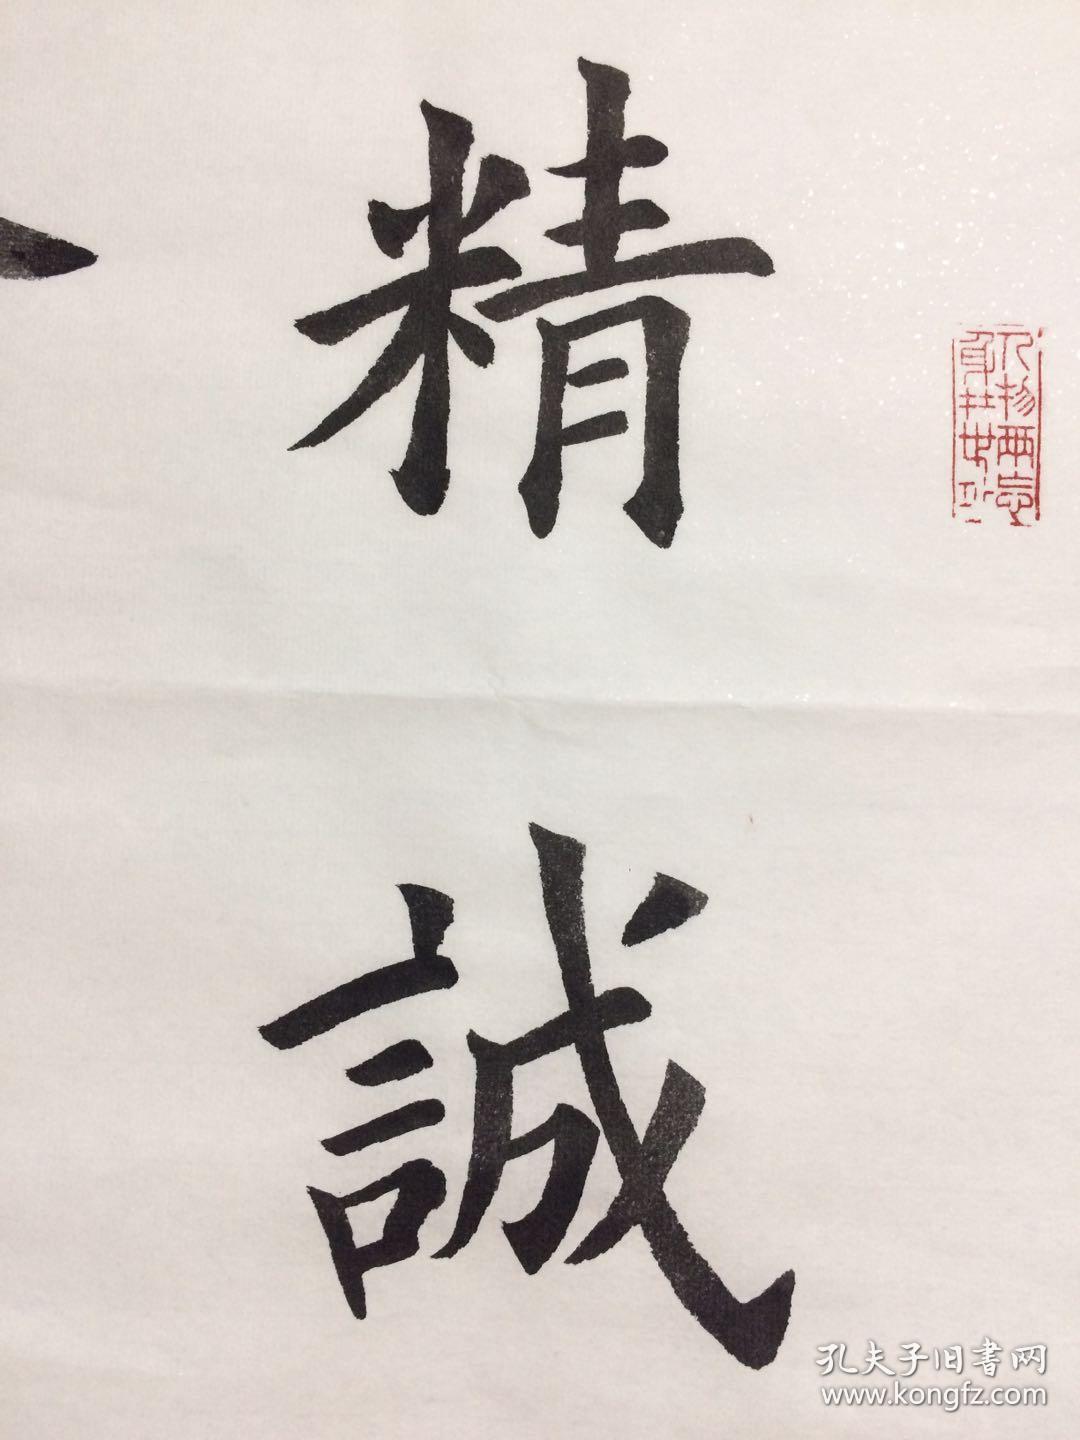 精誠
孔夫子旧書网
www.kongfz.com